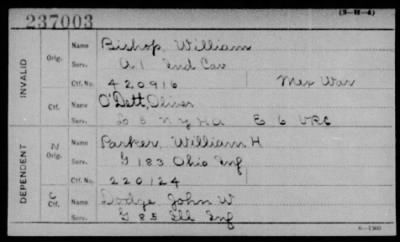 (3-H-4)
237003
INVALID
Orig.
Name Bishop, William
Serv. A 1 Ind Cav
Ctf. No. 420916 Mex War
Ctf.
Name O'Dett, Oliver
Serv. L 5 NY HA E 6 VRC
DEPENDENT
W Orig.
Name Parker, William H
Serv. G 183 Ohio Inf
Ctf. No. 220124
C Ctf.
Name Dodge John W
Serv. G 85 Ill Inf